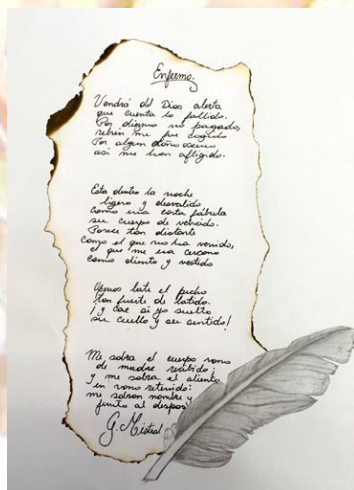 Enfermo.
Vendrá del Dios alerta
que cuenta lo fallido.
Por diezmo no pagado,
rehén me fue cogido
Por algún daño oscuro
así me han afligido.
Está dentro la noche
ligero y desvalido
como una corta fábula
su cuerpo de vencido.
Parece tan distante
como el que no ha venido,
el que me era cercano
como aliento y vestido
Apenas late el pecho
tan fuerte de latido.
¡y cae si yo suelto
su cuello y su sentido!
Me sobra el cuerpo vano
de madre recibido;
y me sobra el aliento
en vano retenido:
me sobran nombre y
junto al despoj
G. Mistral